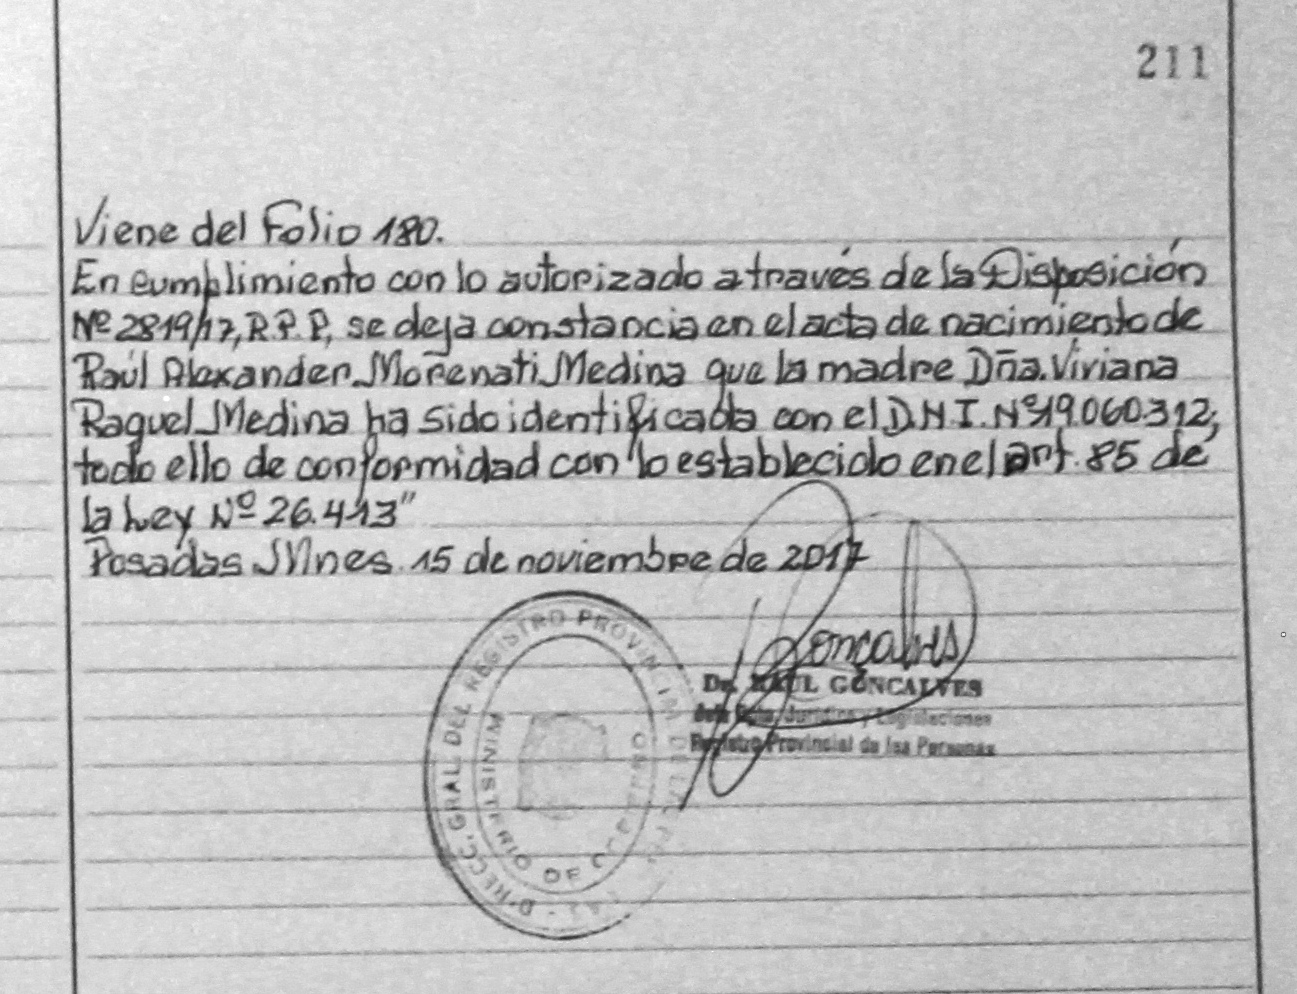 211
Viene del Folio 180.
En cumplimiento con lo autorizado a través de la Disposición
Nº 2819/17, R.P.P, se deja constancia en el acta de nacimiento de
Raúl Alexander Morenati Medina que la madre Dña. Viviana
Raquel Medina ha sido identificada con el D.N.I. Nº 19.060.312,
todo ello de conformidad con lo establecido en el art. 85 de
la Ley Nº 26.413"
Posadas Mnes. 15 de noviembre de 2017
Goncalves
Dr. RAUL GONCALVES
Jefe Dpto. Jurídico y Legislaciones
Registro Provincial de las Personas
DIRECC. GRAL. DEL REGISTRO PROVINCIAL DE LAS
MINISTERIO DE GOBIERNO